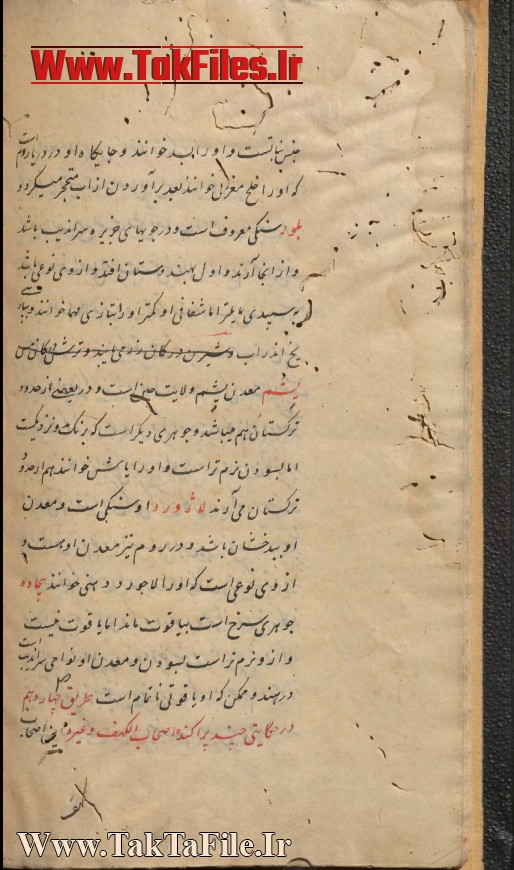 Www.TakFiles.Ir
جنس نباتست و اورا بسد خوانند و جایگاه او در دریا روم است
که اورا خلج مغربی خوانند بعد برآوردن از آب متحجر میکردد
بلور سنکی معروف است و در جویهای جزیره سراندیب باشد
و از انجا آرند و اول بهندوستان افتد و از وی نوعی باشد
بسپیدی مایلتر اما شفافی او کمتر اورا بتازی مها خوانند و
یخ اندر آب
یشم معدن یشم ولایت چین است و در بعضی از حدود
ترکستان هم میباشد و جوهری دیکر است که برنک و نزدیکست
اما بسودن نرم تر است و اورا یاشن خوانند هم از حدود
ترکستان می آرند لاژورد او سنکی است و معدن
او ببدخشان باشد و در روم نیز معدن او هست و
از وی نوعی است که اورا لاجورد دهنی خوانند بیجاده
جوهری سرخ است بیاقوت ماند اما یاقوت نیست
و ازو نرم تر است بسودن و معدن او نواحی سراندیب است
در هند و ممکن که او یاقوتی ناتمام است طریق چهاردهم
در حکایتی چند پراکنده اصحاب الکهف و غیره اصحاب
کهف
Www.TakTaFile.Ir